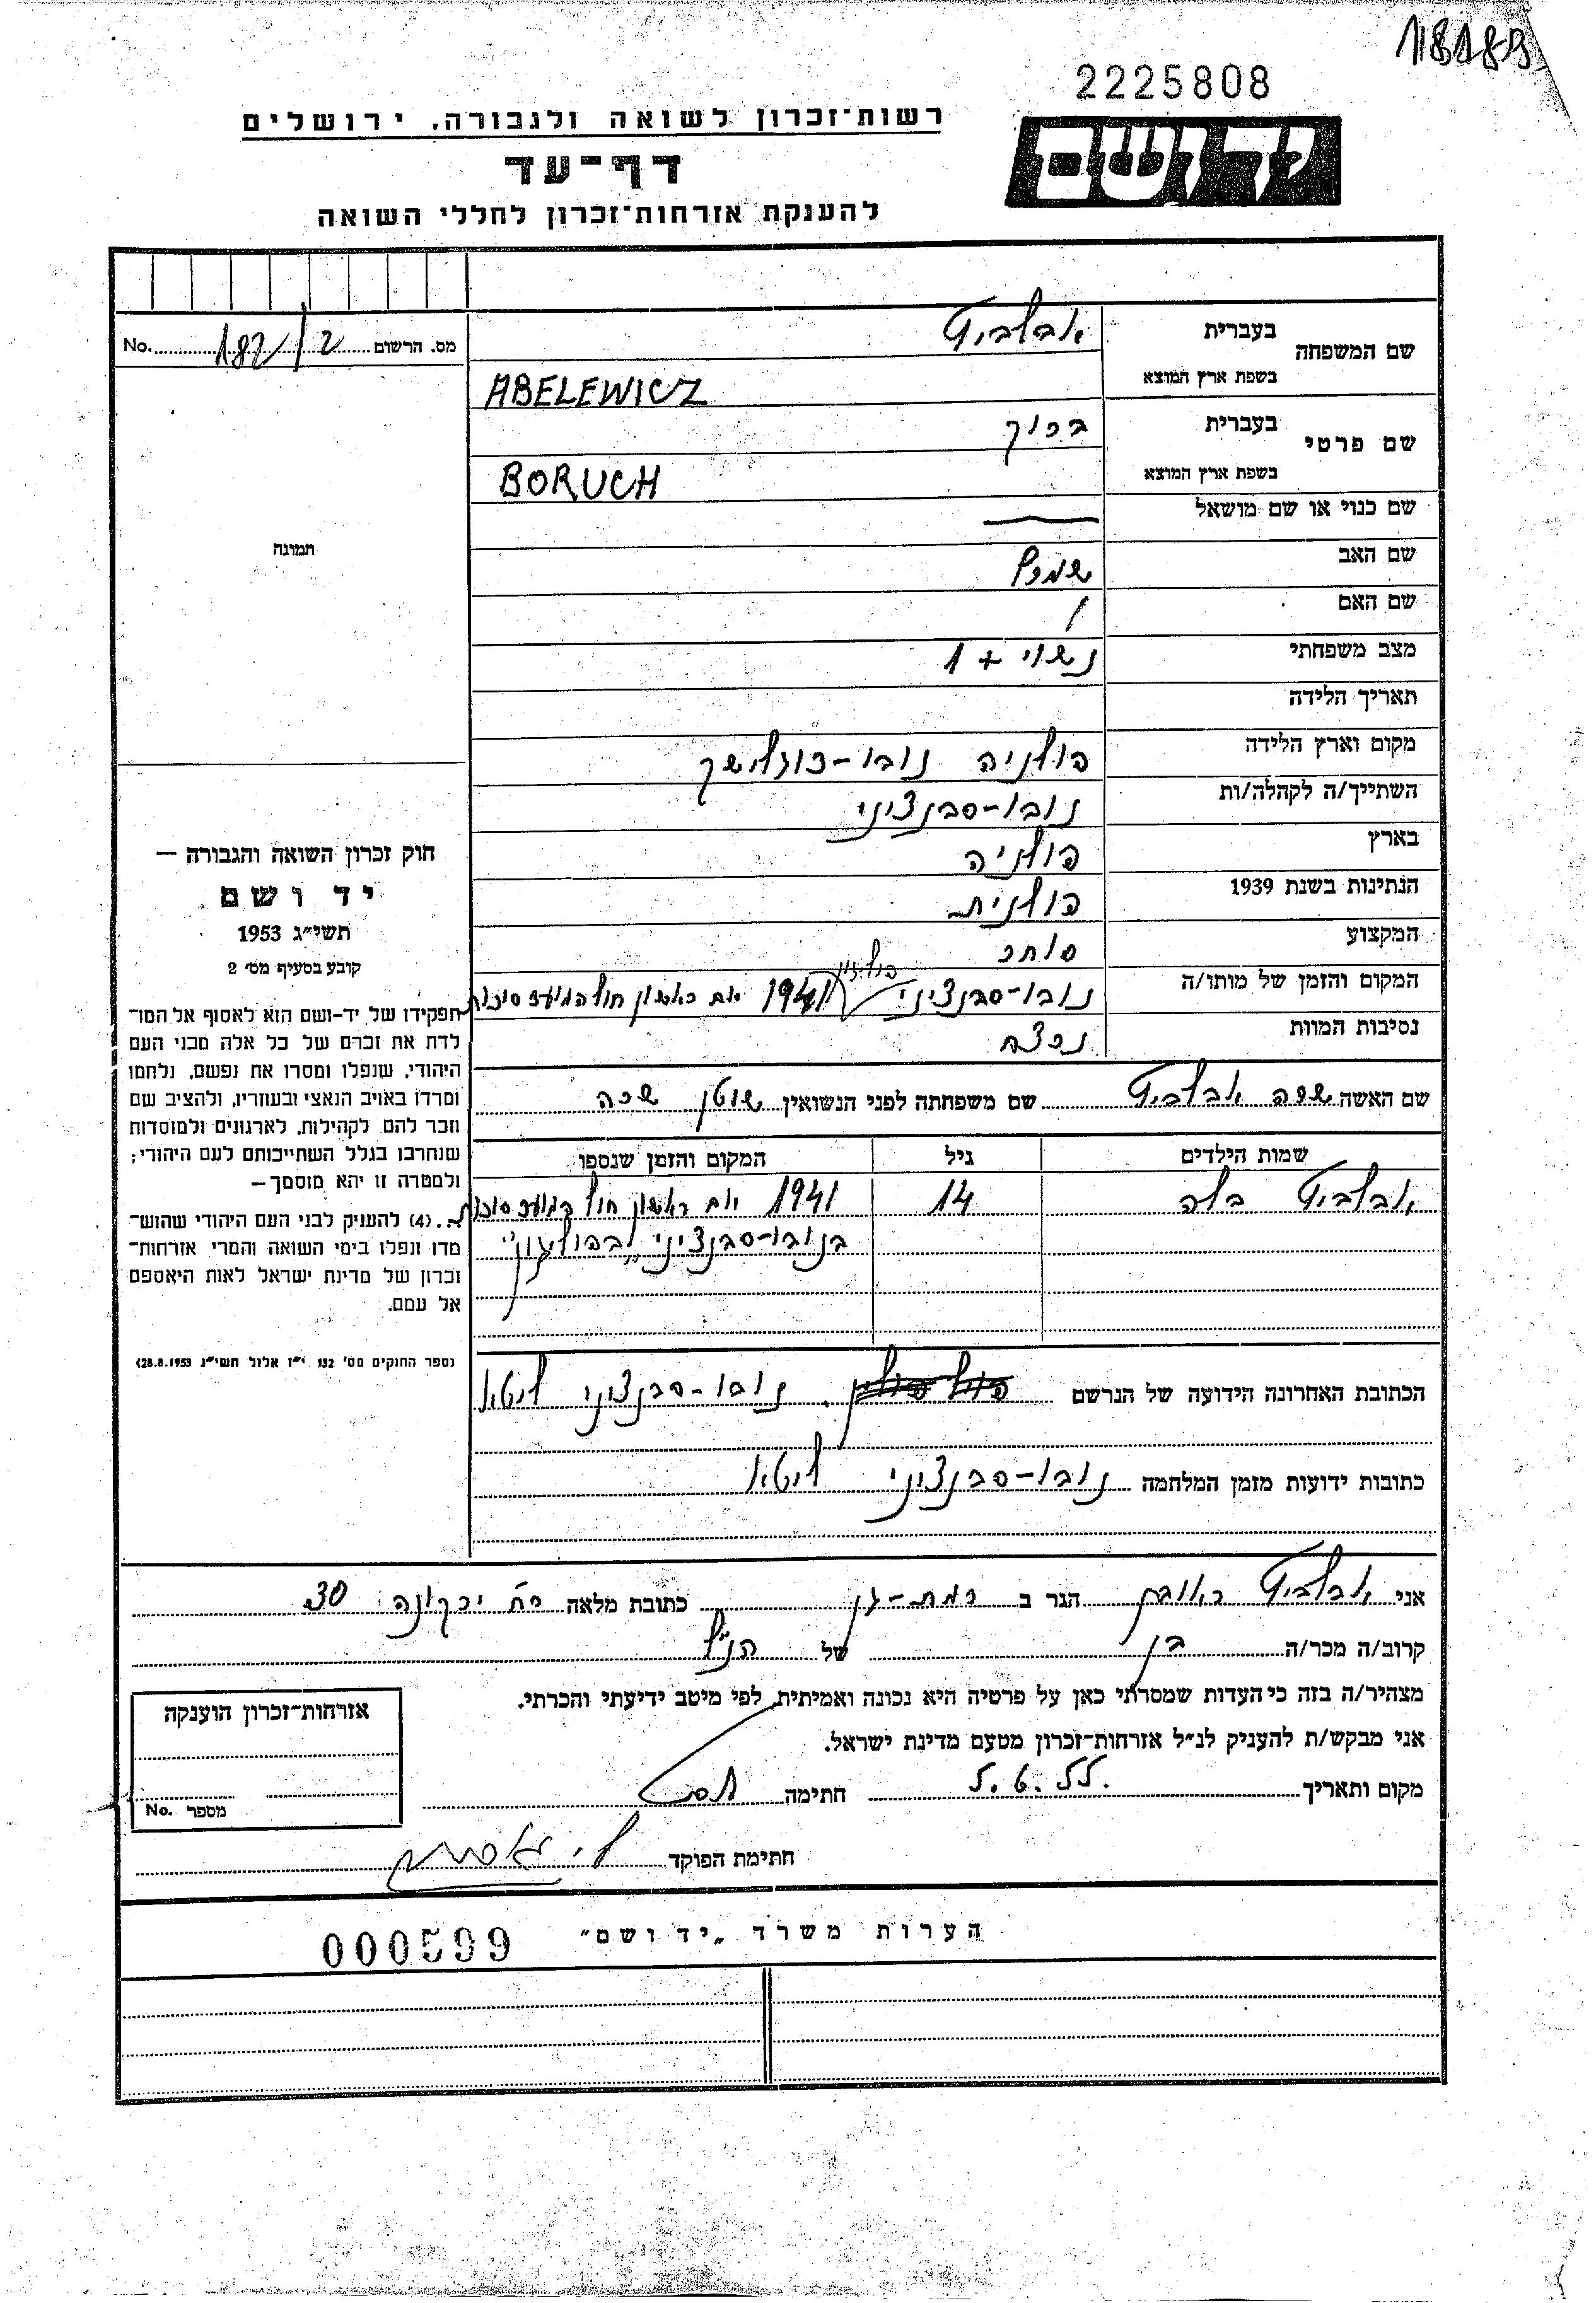 18189
2225808
רשות־זכרון לשואה ולגבורה, ירושלים
יד ושם
דף־עד
להענקת אזרחות־זכרון לחללי השואה
שם המשפחה בעברית
בשפת ארץ המוצא ABELEWICZ
מס. הרשום 182/2 No.
שם פרטי בעברית ברוך
בשפת ארץ המוצא BORUCH
שם כנוי או שם מושאל —
שם האב
שם האם /
מצב משפחתי נשוי + 1
תאריך הלידה
מקום וארץ הלידה פולניה נובו-
השתייך/ה לקהלה/ות נובו-סבנציני
בארץ פולניה
הנתינות בשנת 1939 פולנית
המקצוע סוחר
המקום והזמן של מותו/ה נובו-סבנציני פוליגון 1941 יום ראשון חול המועד סוכות
נסיבות המוות נרצח
שם האשה שרה שם משפחתה לפני הנשואין שרה
שמות הילדים גיל המקום והזמן שנספו
בלה 14 1941 יום ראשון חול המועד סוכות
בנובו-סבנציני „בפוליגון"
הכתובת האחרונה הידועה של הנרשם נובו-סבנציני ליטא
כתובות ידועות מזמן המלחמה נובו-סבנציני ליטא
תמונה
חוק זכרון השואה והגבורה —
יד ושם
תשי״ג 1953
קובע בסעיף מס׳ 2
תפקידו של יד-ושם הוא לאסוף אל המו־
לדת את זכרם של כל אלה מבני העם
היהודי, שנפלו ומסרו את נפשם, נלחמו
ומרדו באויב הנאצי ובעוזריו, ולהציב שם
וזכר להם לקהילות, לארגונים ולמוסדות
שנחרבו בגלל השתייכותם לעם היהודי;
ולמטרה זו יהא מוסמך—
(4) להעניק לבני העם היהודי שהוש־
מדו ונפלו בימי השואה והמרי אזרחות־
זכרון של מדינת ישראל לאות היאספם
אל עמם.
(ספר החוקים מס׳ 132 י״ז אלול תשי״ג 28.8.1953)
אני ראובן הגר ב רמת-גן כתובת מלאה רח׳ ירקונה 30
קרוב/ה מכר/ה בן של הנ״ל
מצהיר/ה בזה כי העדות שמסרתי כאן על פרטיה היא נכונה ואמיתית, לפי מיטב ידיעתי והכרתי.
אני מבקש/ת להעניק לנ״ל אזרחות־זכרון מטעם מדינת ישראל.
מקום ותאריך 5.6.55 חתימה
חתימת הפוקד
אזרחות־זכרון הוענקה
מספר No.
הערות משרד „יד ושם״
000599